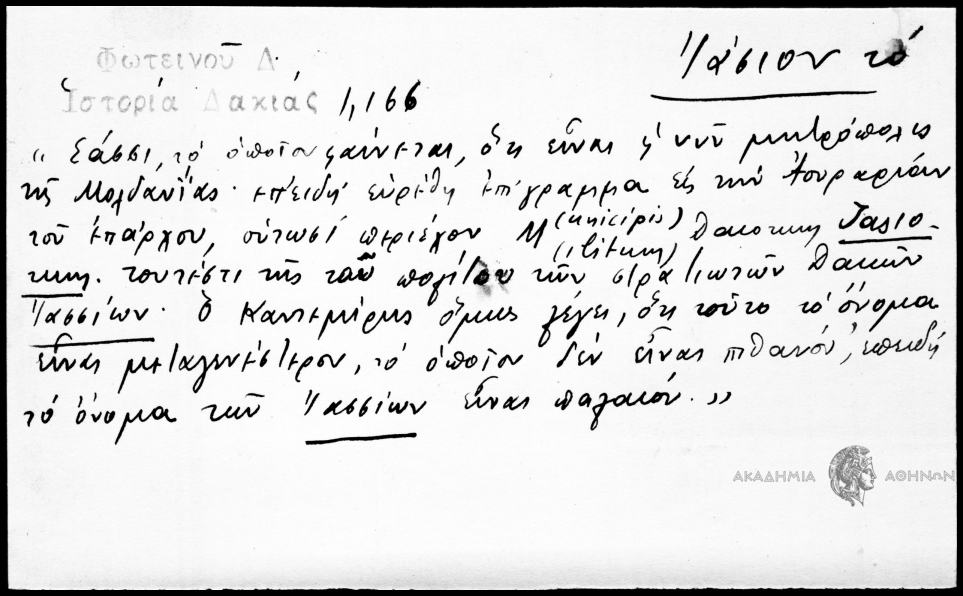 Φωτεινοῦ Δ
Ἱστορία Δακίας 1,166
Ἰάσιον τό
"Σάσσι, τὸ ὁποῖον φαίνεται, ὅτι εἶναι ἡ νῦν μητρόπολις
τῆς Μολδανΐας· ἐπειδὴ εὑρέθη ἐπίγραμμα εἰς τὴν
τοῦ ἐπάρχου, οὑτωσὶ περιέχον M(unicipii)
(ilitum) Dacorum Jassio-
rum. τουτέστι τῆς τοῦ πολίτου τῶν στρατιωτῶν Δακῶν
Ἰασσίων· ὁ Καντεμίρης ὅμως λέγει, ὅτι τοῦτο τὸ ὄνομα
εἶναι μεταγενέστερον, τὸ ὁποῖον δὲν εἶναι πιθανόν, ἐπειδὴ
τὸ ὄνομα τῶν Ἰασσίων εἶναι παλαιόν."
ΑΚΑΔΗΜΙΑ ΑΘΗΝΩΝ